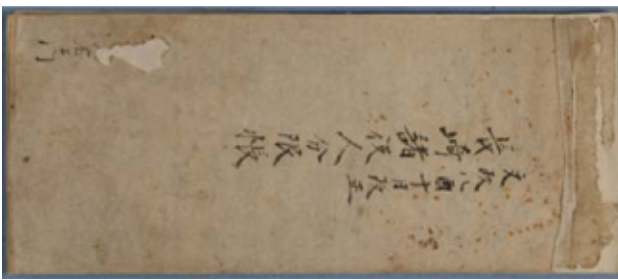 文政八酉十月改正
長崎諸役人分限帳
門